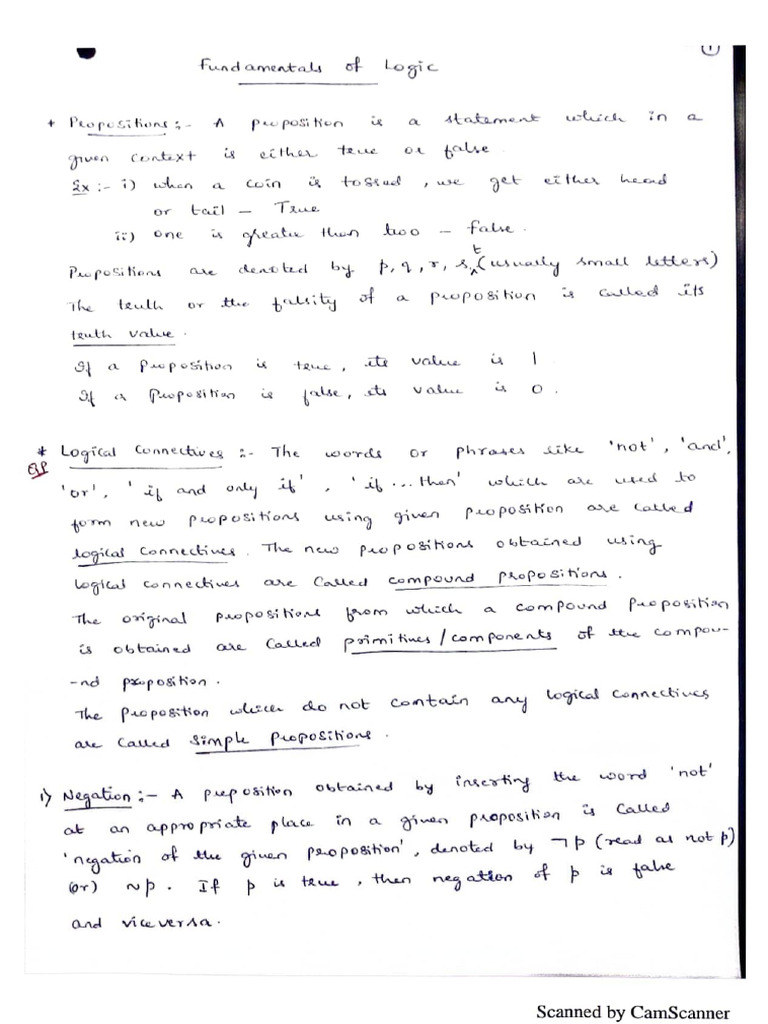 1
Fundamentals of Logic
* Propositions :- A proposition is a statement which in a
given context is either true or false.
Ex :- i) when a coin is tossed, we get either head
or tail - True
ii) one is greater than two - false.
t
Propositions are denoted by p, q, r, s,^ (usually small letters)
The truth or the falsity of a proposition is called its
truth value.
If a proposition is true, its value is 1
If a proposition is false, its value is 0.
* Logical Connectives :- The words or phrases like 'not', 'and',
'or', 'if and only if', 'if...then' which are used to
form new propositions using given proposition are called
logical connectives. The new propositions obtained using
logical connectives are called compound propositions.
The original propositions from which a compound proposition
is obtained are called primitives / components of the compou-
-nd proposition.
The proposition which do not contain any logical connectives
are called simple propositions.
1) Negation :- A proposition obtained by inserting the word 'not'
at an appropriate place in a given proposition is called
'negation of the given proposition', denoted by ¬p (read as not p)
(or) ~p. If p is true, then negation of p is false
and viceversa.
Scanned by CamScanner